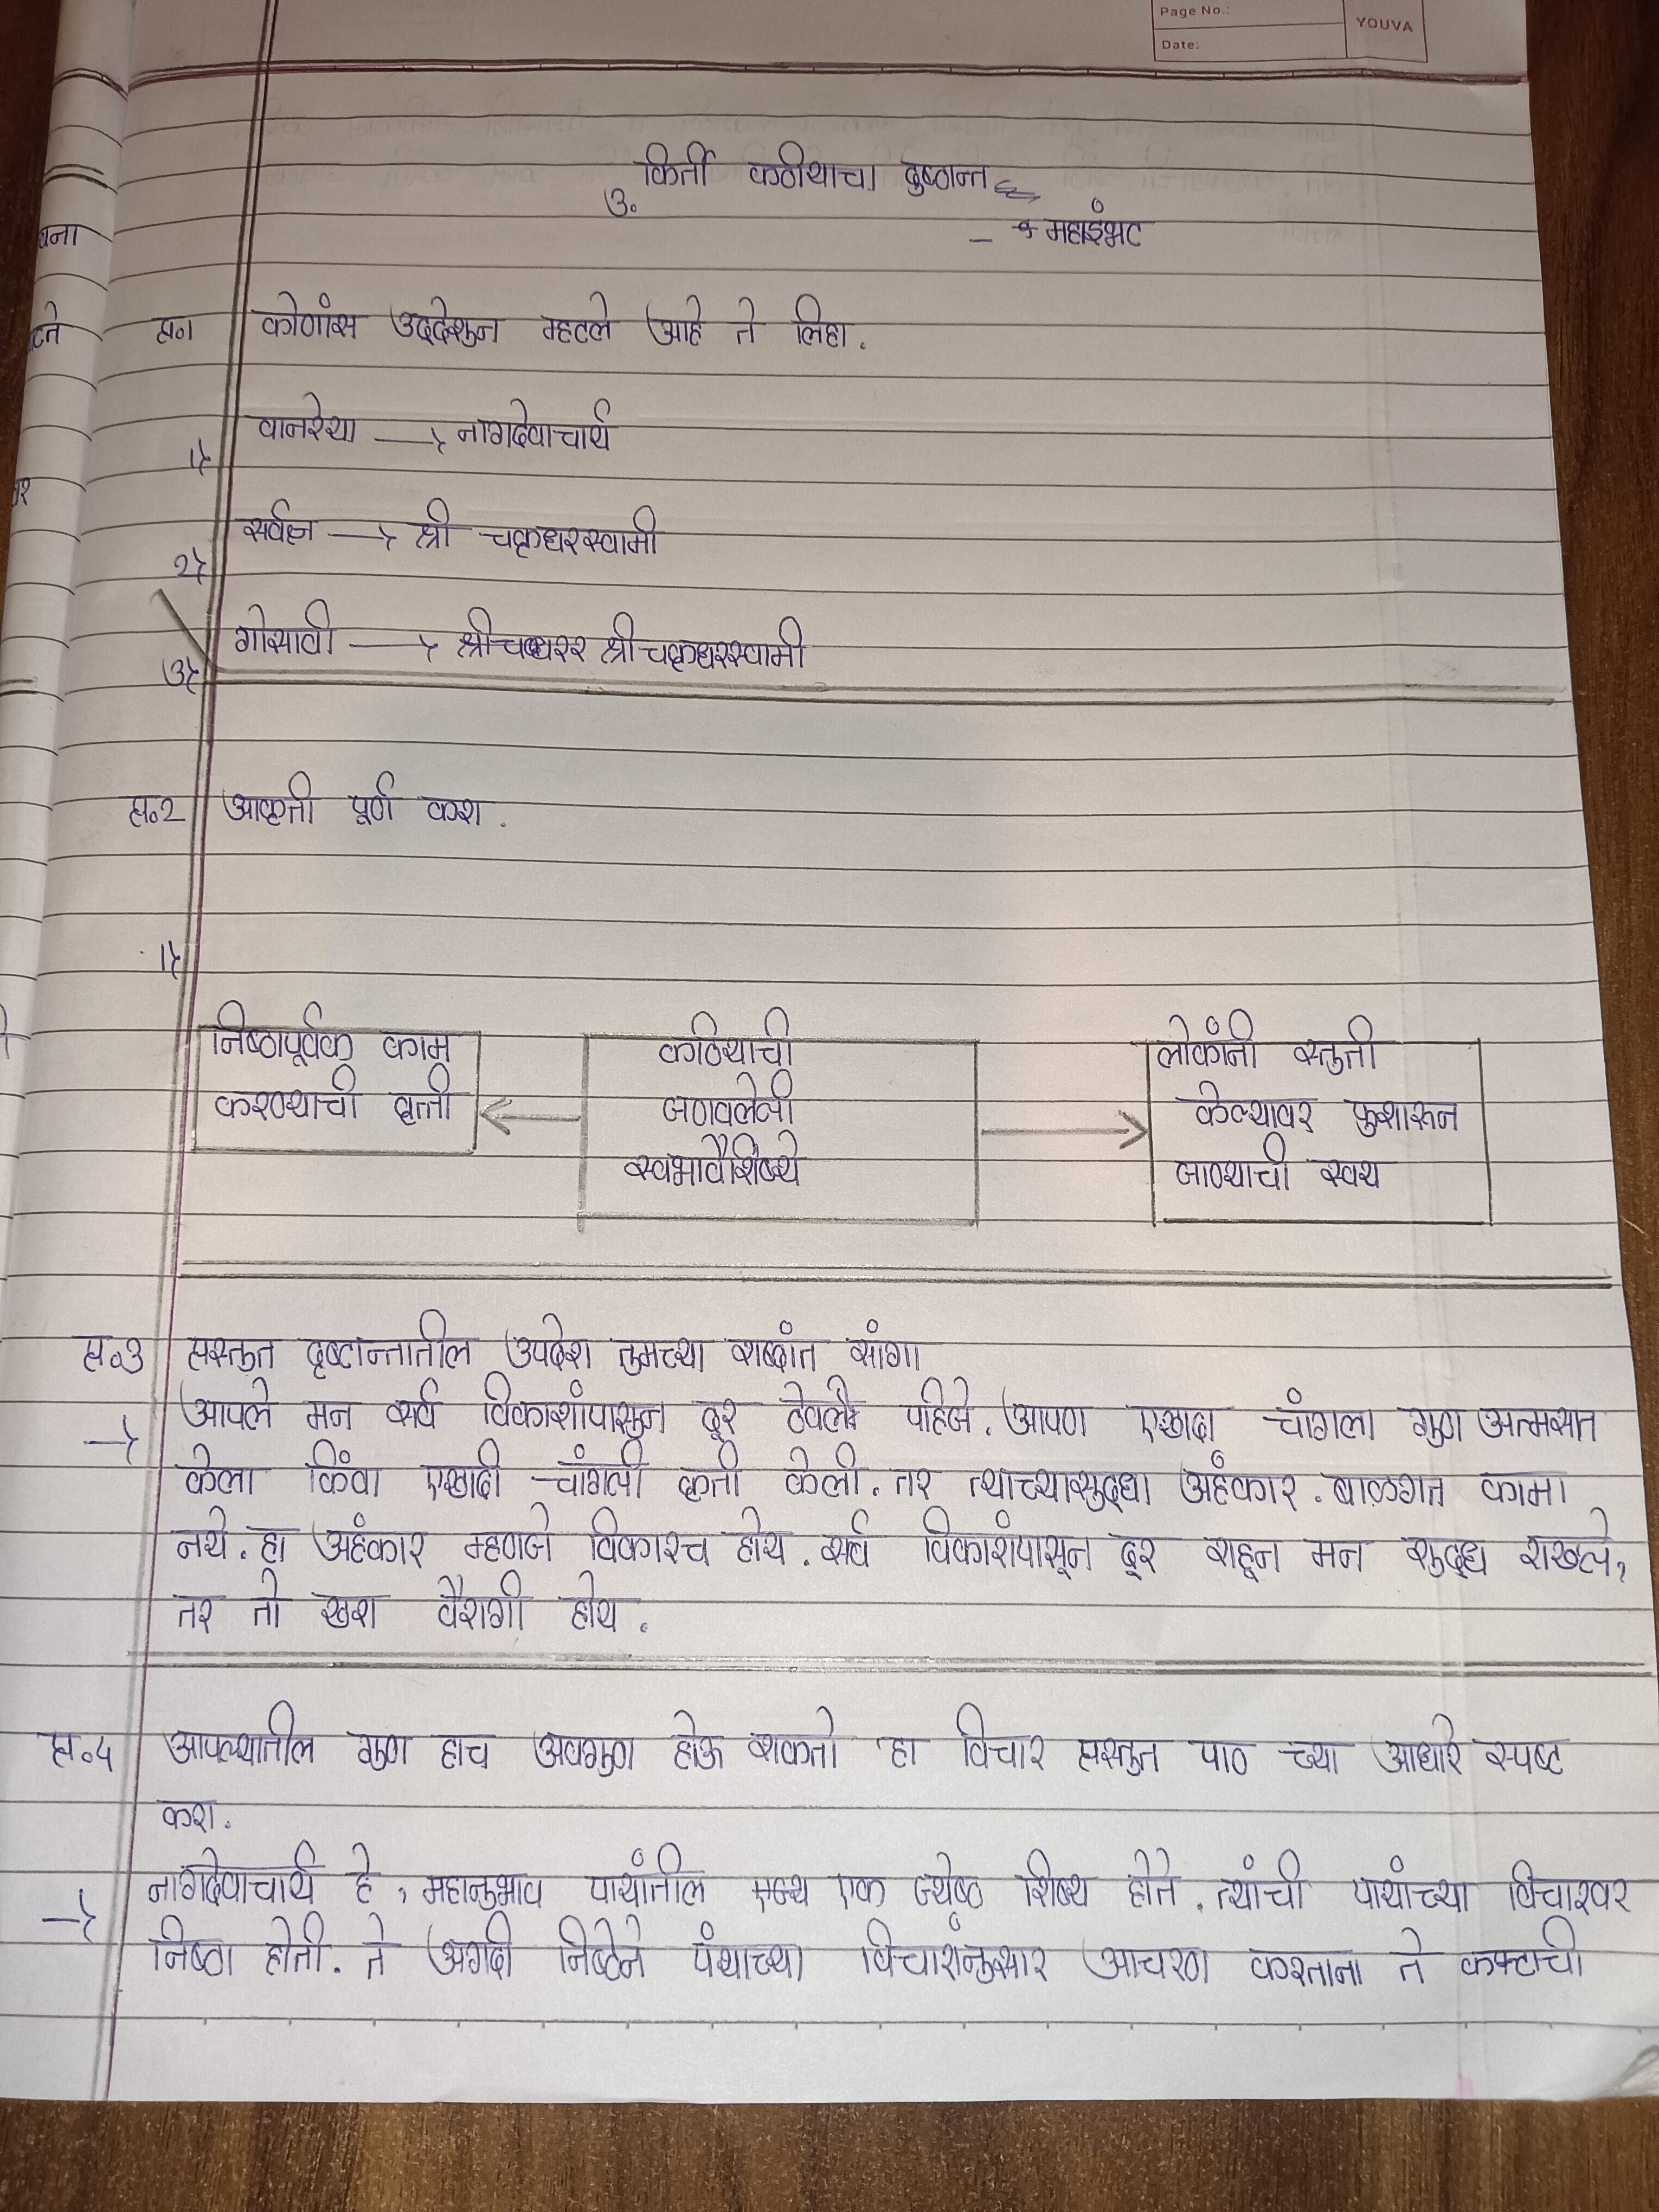 Page No.:
YOUVA
Date:
किर्ती कठीयाचा दुष्ठान्त
3.
- महाइंभट
प्र.1 कोणांस उद्देशुन म्हटले आहे ते लिहा.
1) वानरेया → नागदेवाचार्य
2) सर्वज्ञ → श्री चक्रधरस्वामी
3) गोसावी → श्रीचक्रधरस्वामी
प्र.२ आकृती पूर्ण करा.
1)
निष्ठापूर्वक काम
करण्याची वृत्ती
कठियाची
जाणवलेली
स्वभाववैशिष्ये
लोकांनी स्तुती
केल्यावर फुशारून
जाण्याची सवय
प्र.3 प्रस्तुत दृष्टान्तातील उपदेश तुमच्या शब्दांत सांगा
→ आपले मन सर्व विकारांपासुन दूर ठेवले पहिजे. आपण एखादा चांगला गुण अत्मसात
केला किंवा एखादी चांगली कृती केली. तर त्याच्यासुद्धा अहंकार. बाळगत कामा
नये. हा अहंकार म्हणजे विकारच होय. सर्व विकारांपासून दूर राहून मन शुद्ध राखले,
तर तो खरा वैरागी होय.
प्र.4 आपल्यातील गुण हाच अवगुण होऊ शकतो हा विचार प्रस्तुत पाठ च्या आधारे स्पष्ट
करा.
→ नागदेवाचार्य हे, महानुभाव पाथांतील एक ज्येष्ठ शिष्य होते. त्यांची पाथांच्या विचारवर
निष्ठा होती. ते अगदी निष्ठेने पंथाच्या विचारांनुसार आचरण करताना ते कष्टाची